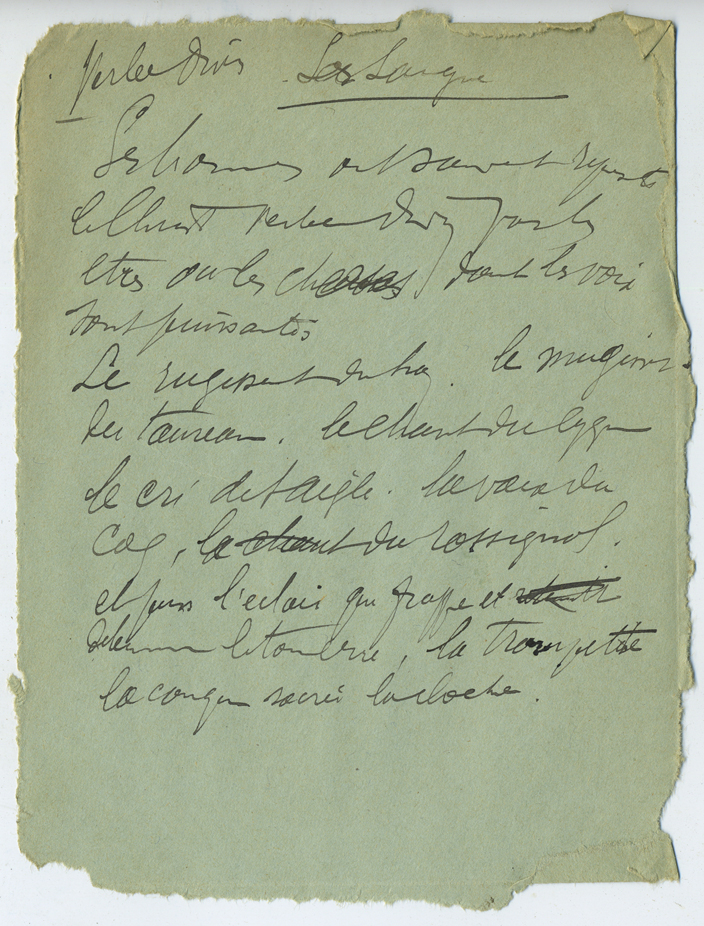 Verbe Divin La Langue
Les hommes ont souvent représenté
le Christ Verbe divin par les
êtres ou les choses dont les voix
sont puissantes
Le rugissement du lion. le mugissement
du taureau. le chant du cygne
le cri de l'aigle. la voix du
coq, le chant du rossignol.
et puis l'éclair qui frappe et
le tonnerre, la trompette
la conque sacrée la cloche.